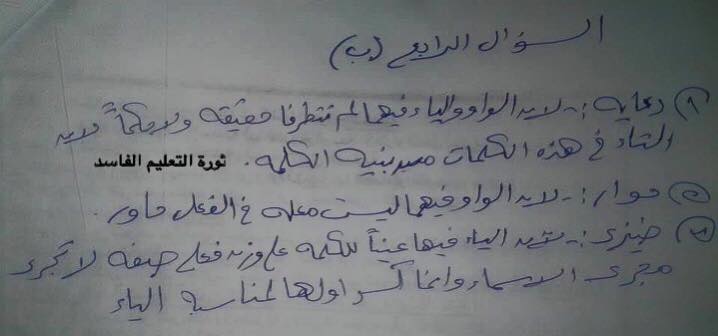 السؤال الرابع (ب)
(١) دعايه :- لان الواو والياء فيها لم تتطرفا حقيقه ولا حكماً لان
التاء فى هذه الكلمات من بنية الكلمه .
ثورة التعليم الفاسد
(٢) حوار :- لان الواو فيها ليست معله فى الفعل حاور .
(٣) ضيزى :- لان الياء فيها عيناً للكلمه على وزن فعلى صفه لا تجرى
مجرى الاسماء وانما كسر اولها لمناسبة الياء